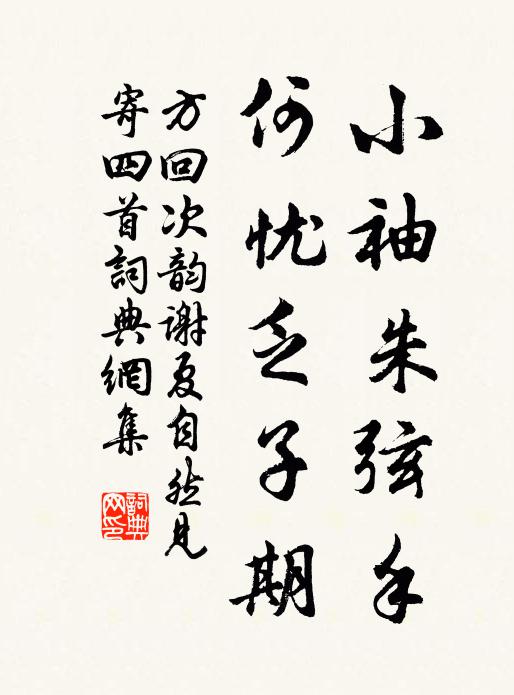 小袖朱弦手
何忧乏子期
方回次韵谢夏自然见
寄四首詞典網集
詞典网印